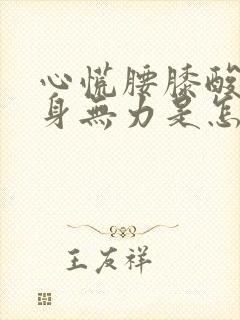 心慌腰膝酸
身無力是怎
王友祥